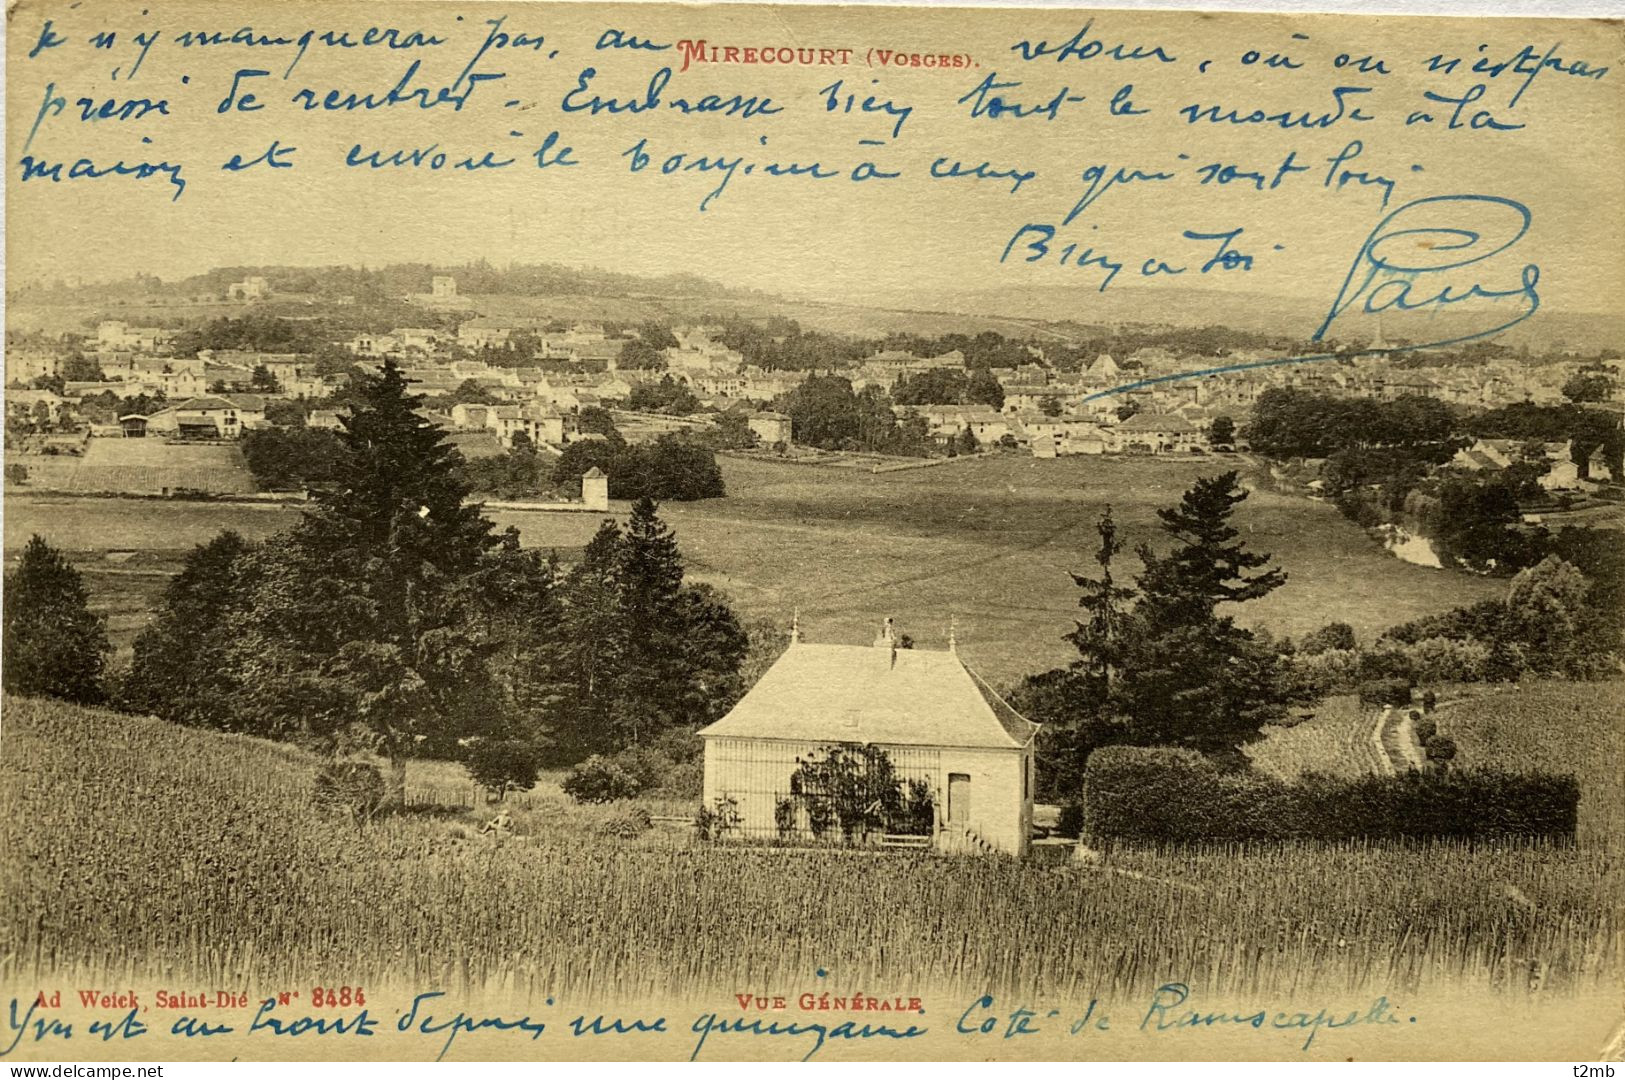 je n'y manquerai pas, au retour, où on n'est pas
MIRECOURT (VOSGES).
préssé de rentrer - Embrasse bien tout le monde à la
maison et envoie le bonjour à ceux qui sont loin
Bien à toi Paul
Ad Weick, Saint-Dié - N° 8484
VUE GÉNÉRALE
Yvan est au front depuis une quinzaine Coté de Ramscapelle.
t2mb